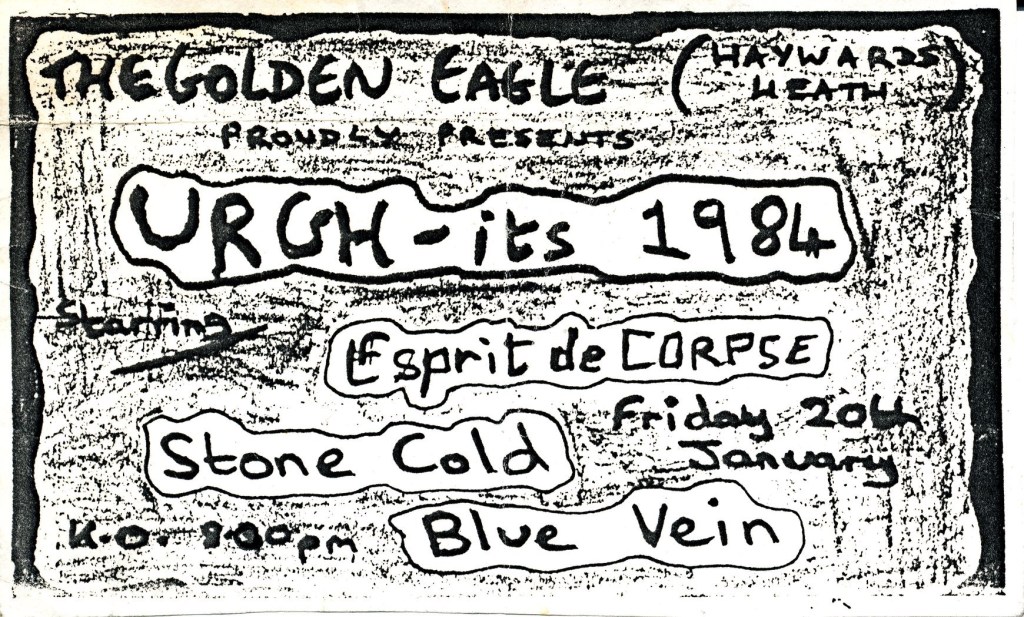 THE GOLDEN EAGLE (HAYWARDS HEATH)
PROUDLY PRESENTS
URGH - its 1984
Starring
Esprit de CORPSE
Friday 20th
January
Stone Cold
K.O. 8.00pm
Blue Vein